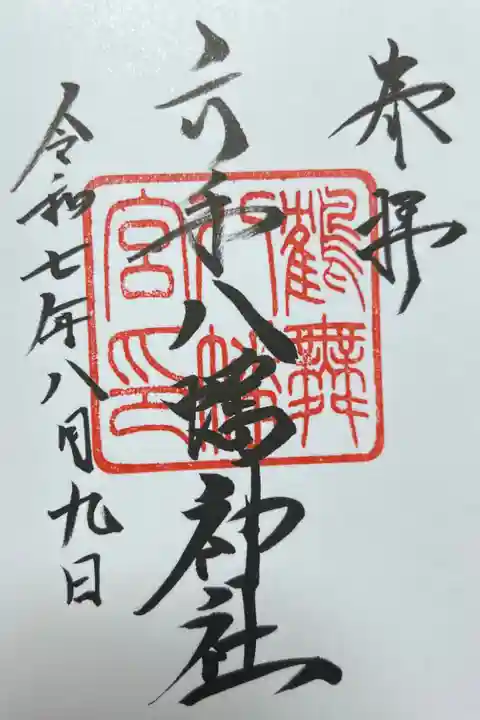 奉拝
和八幡神社
令和七年八月九日
鶴舞
八幡
宮印